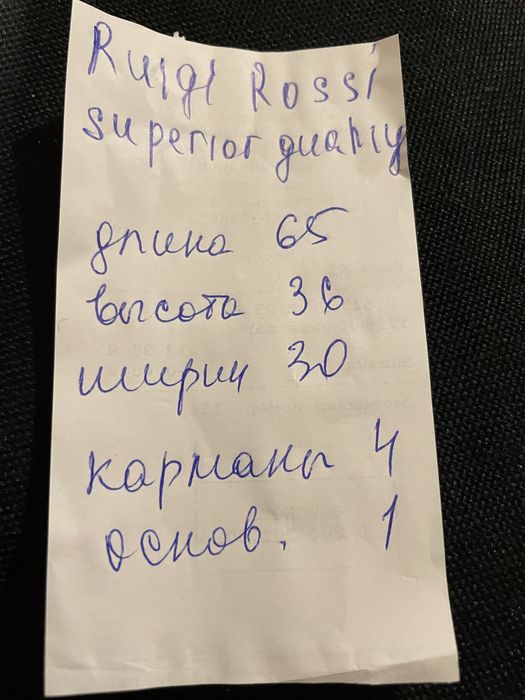 Ruigi Rossi
superior quality
длина 65
высота 36
ширин 30
карманы 4
основ. 1